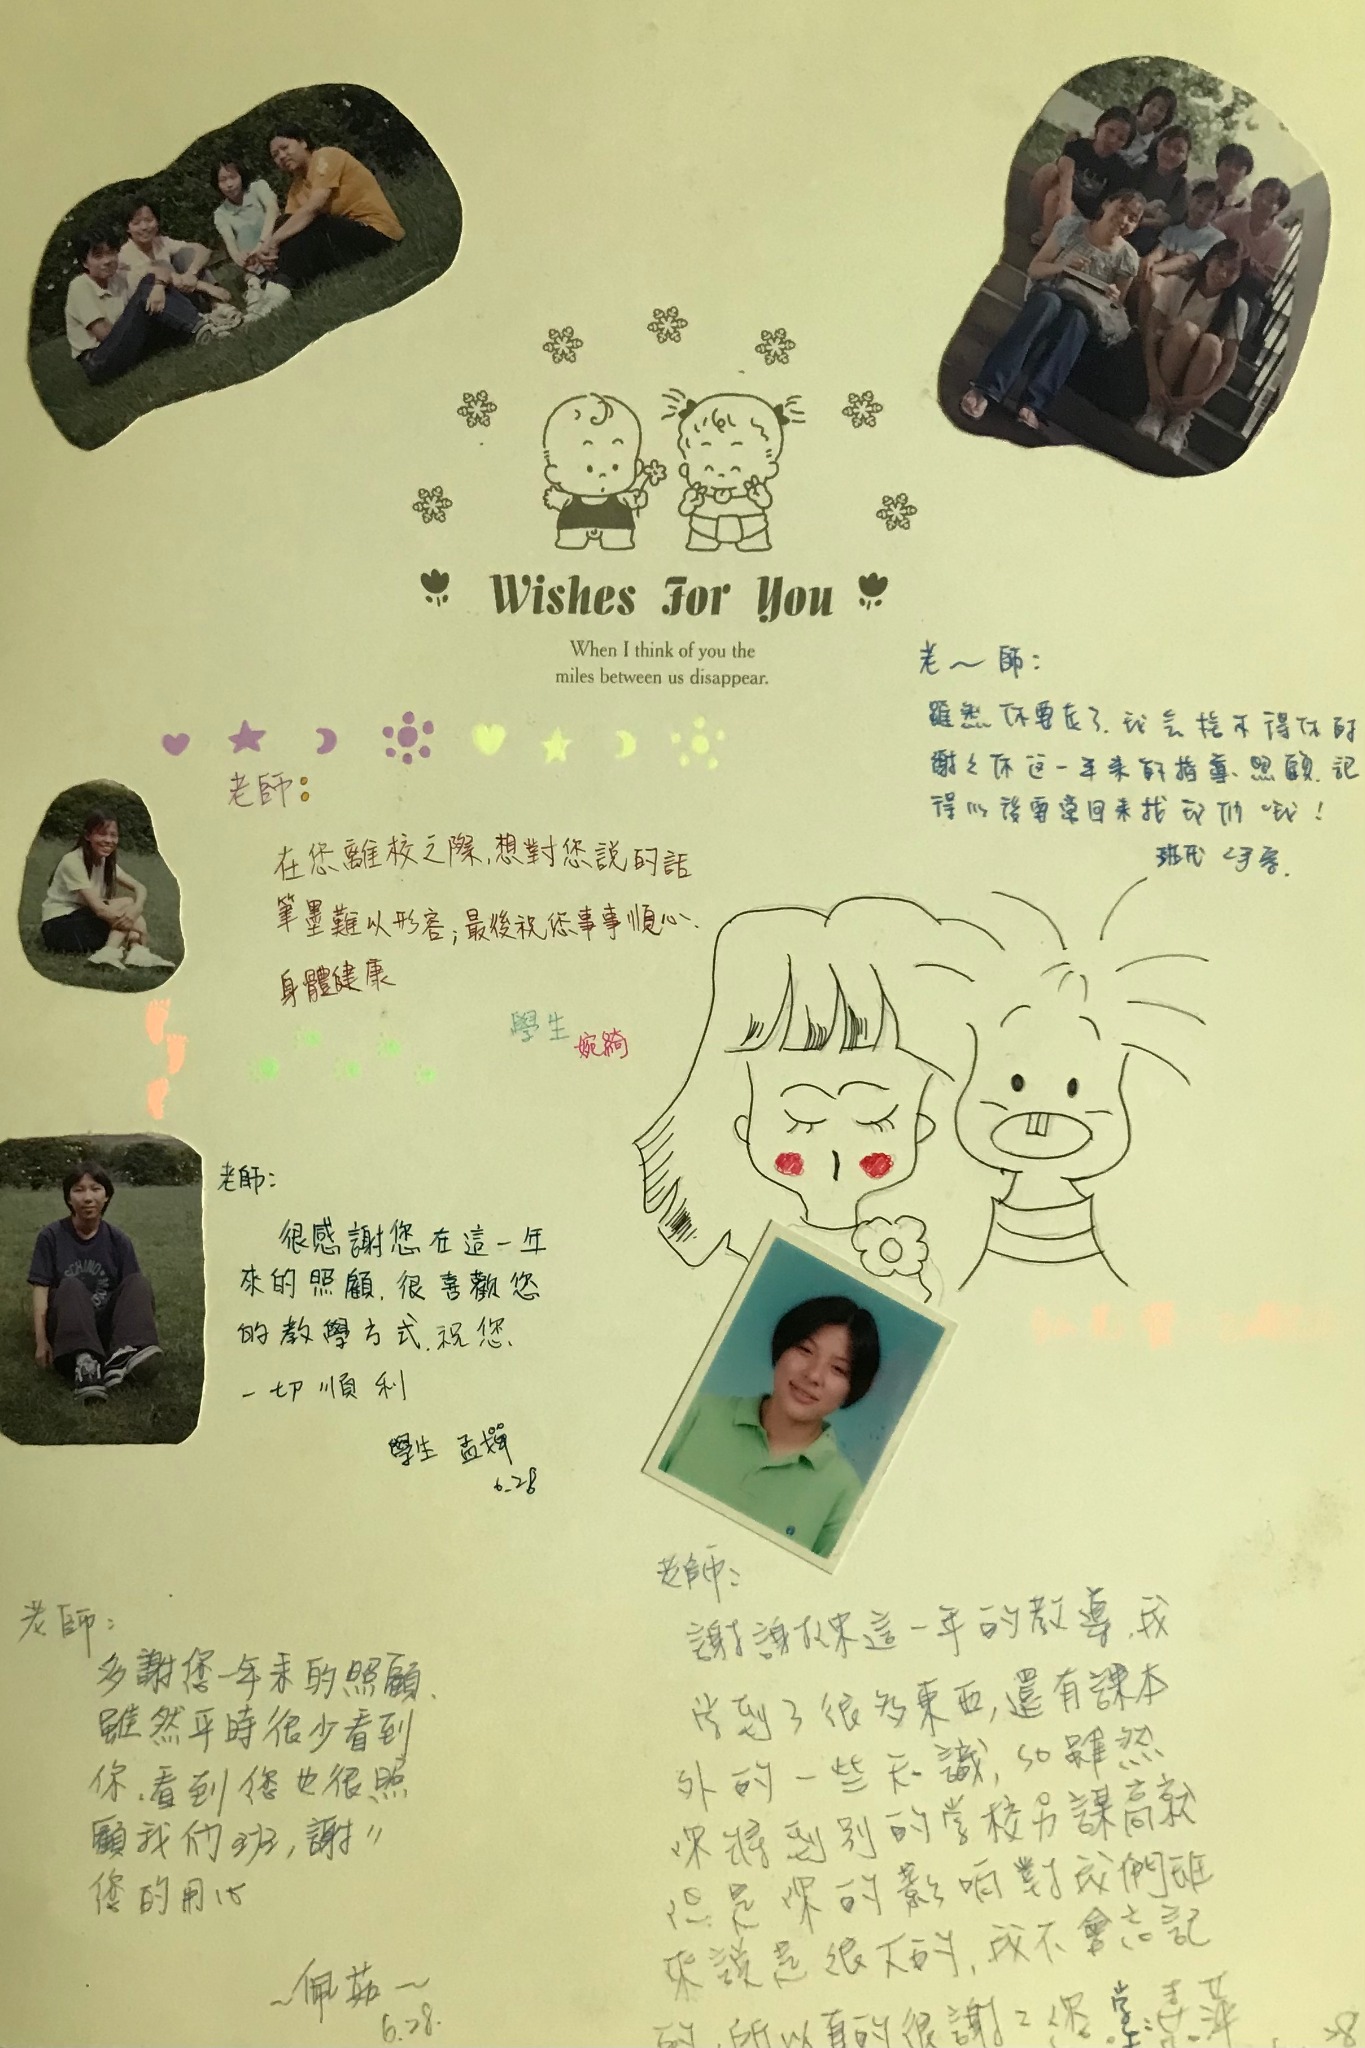 Wishes For You
When I think of you the
miles between us disappear.
老～師：
雖然你要走了，我会捨不得你的
謝々你这一年来的指導、照顧，記
得以後要常回来找我们哦！
班代
老師：
在您離校之際，想對您說的話
筆墨難以形容；最後祝您事事順心、
身體健康
學生 婉綺
老師：
很感謝您在這一年
來的照顧，很喜歡您
的教學方式，祝您、
一切順利
學生 孟輝
6.28
老師：
多謝您一年來的照顧，
雖然平時很少看到
你，看到您也很照
顧我们班，謝〃
您的用心
～佩茹～
6.28.
老師：
謝謝你這一年的教導，我
学到了很多東西，還有課本
外的一些知識，so雖然
你將到別的学校另謀高就
但是你的影响對我們班
來說是很大的，我不會忘記
的，所以真的很謝々您 学生